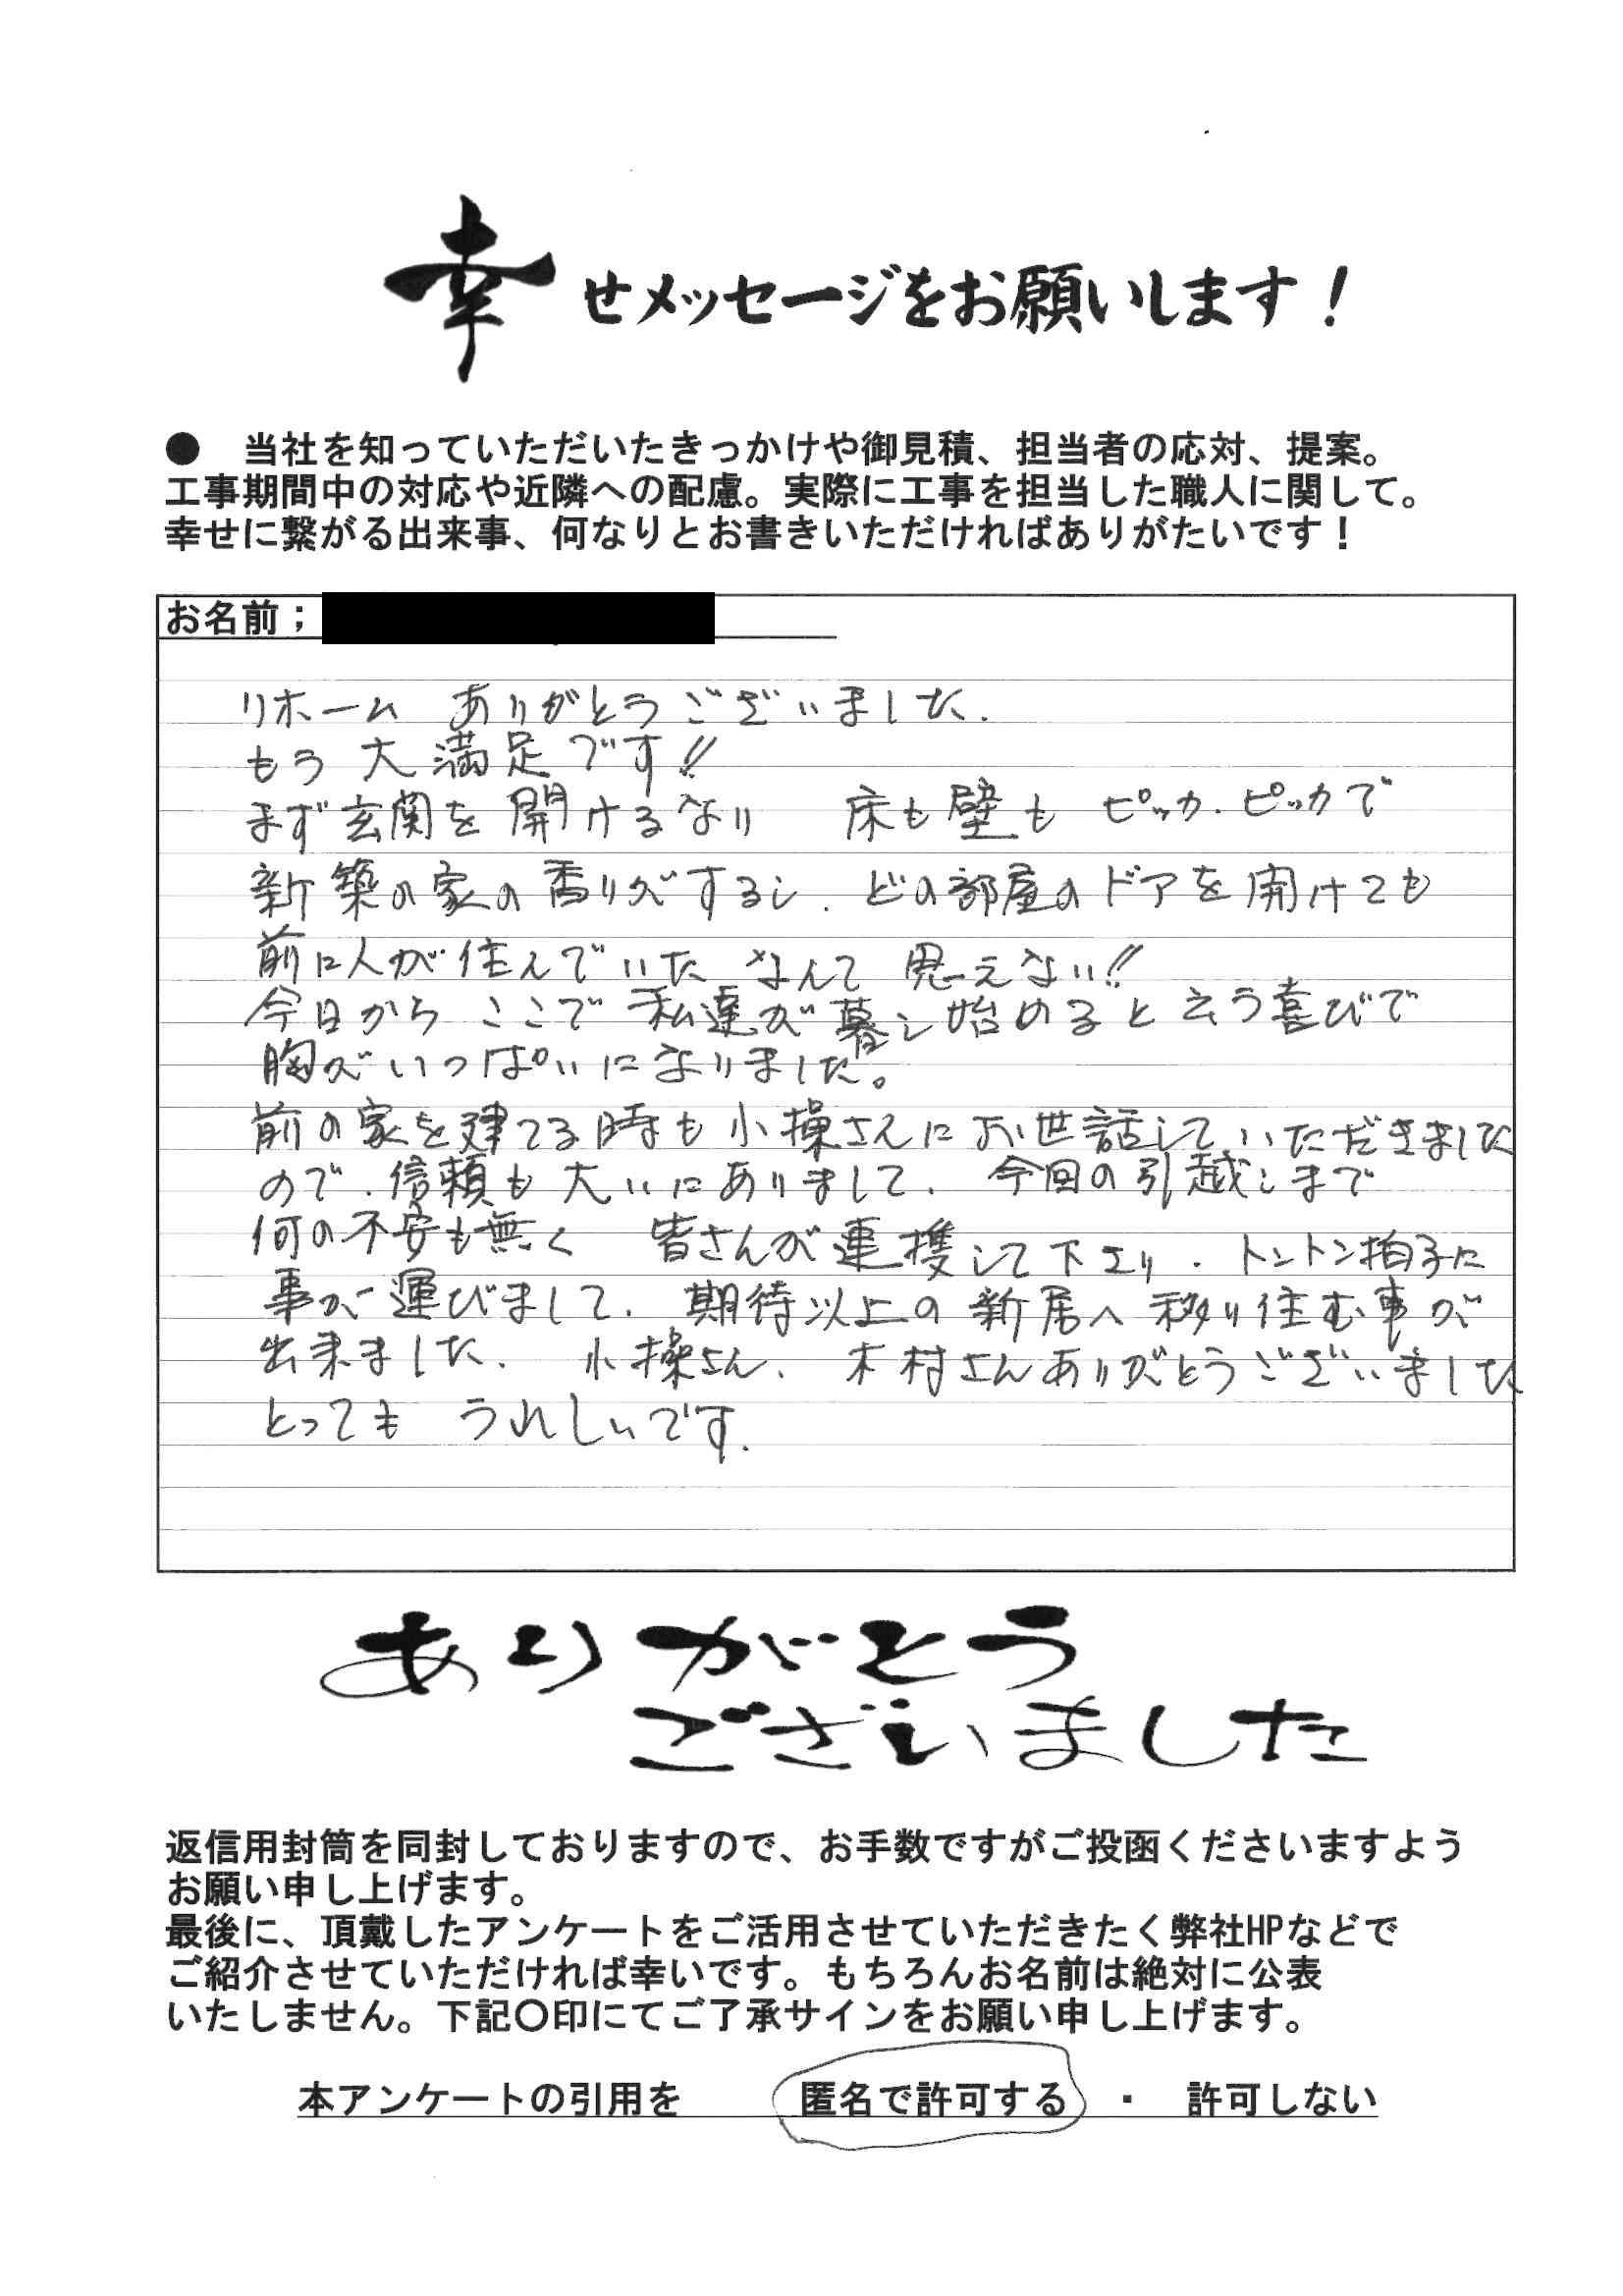 幸せメッセージをお願いします！
●　当社を知っていただいたきっかけや御見積、担当者の応対、提案。
工事期間中の対応や近隣への配慮。実際に工事を担当した職人に関して。
幸せに繋がる出来事、何なりとお書きいただければありがたいです！
お名前；
リホーム ありがとうございました.
もう 大満足です!!
まず玄関を開けるなり　床も壁も ピッカ.ピッカで
新築の家の香りがするし. どの部屋のドアを開けても
前に人が住んでいた なんて 思えない!!
今日から ここで 私達が暮し始めると云う喜びで
胸がいっぱいになりました。
前の家を建てる時も小操さんにお世話していただきました
ので.信頼も大いにありまして. 今回の引越しまで
何の不安も無く　皆さんが連携して下さり. トントン拍子に
事が運びまして. 期待以上の新居へ移り住む事が
出来ました. 小操さん. 木村さんありがとうございました
とっても うれしいです.
ありがとう
ございました
返信用封筒を同封しておりますので、お手数ですがご投函くださいますよう
お願い申し上げます。
最後に、頂戴したアンケートをご活用させていただきたく弊社HPなどで
ご紹介させていただければ幸いです。もちろんお名前は絶対に公表
いたしません。下記〇印にてご了承サインをお願い申し上げます。
本アンケートの引用を　匿名で許可する　・　許可しない